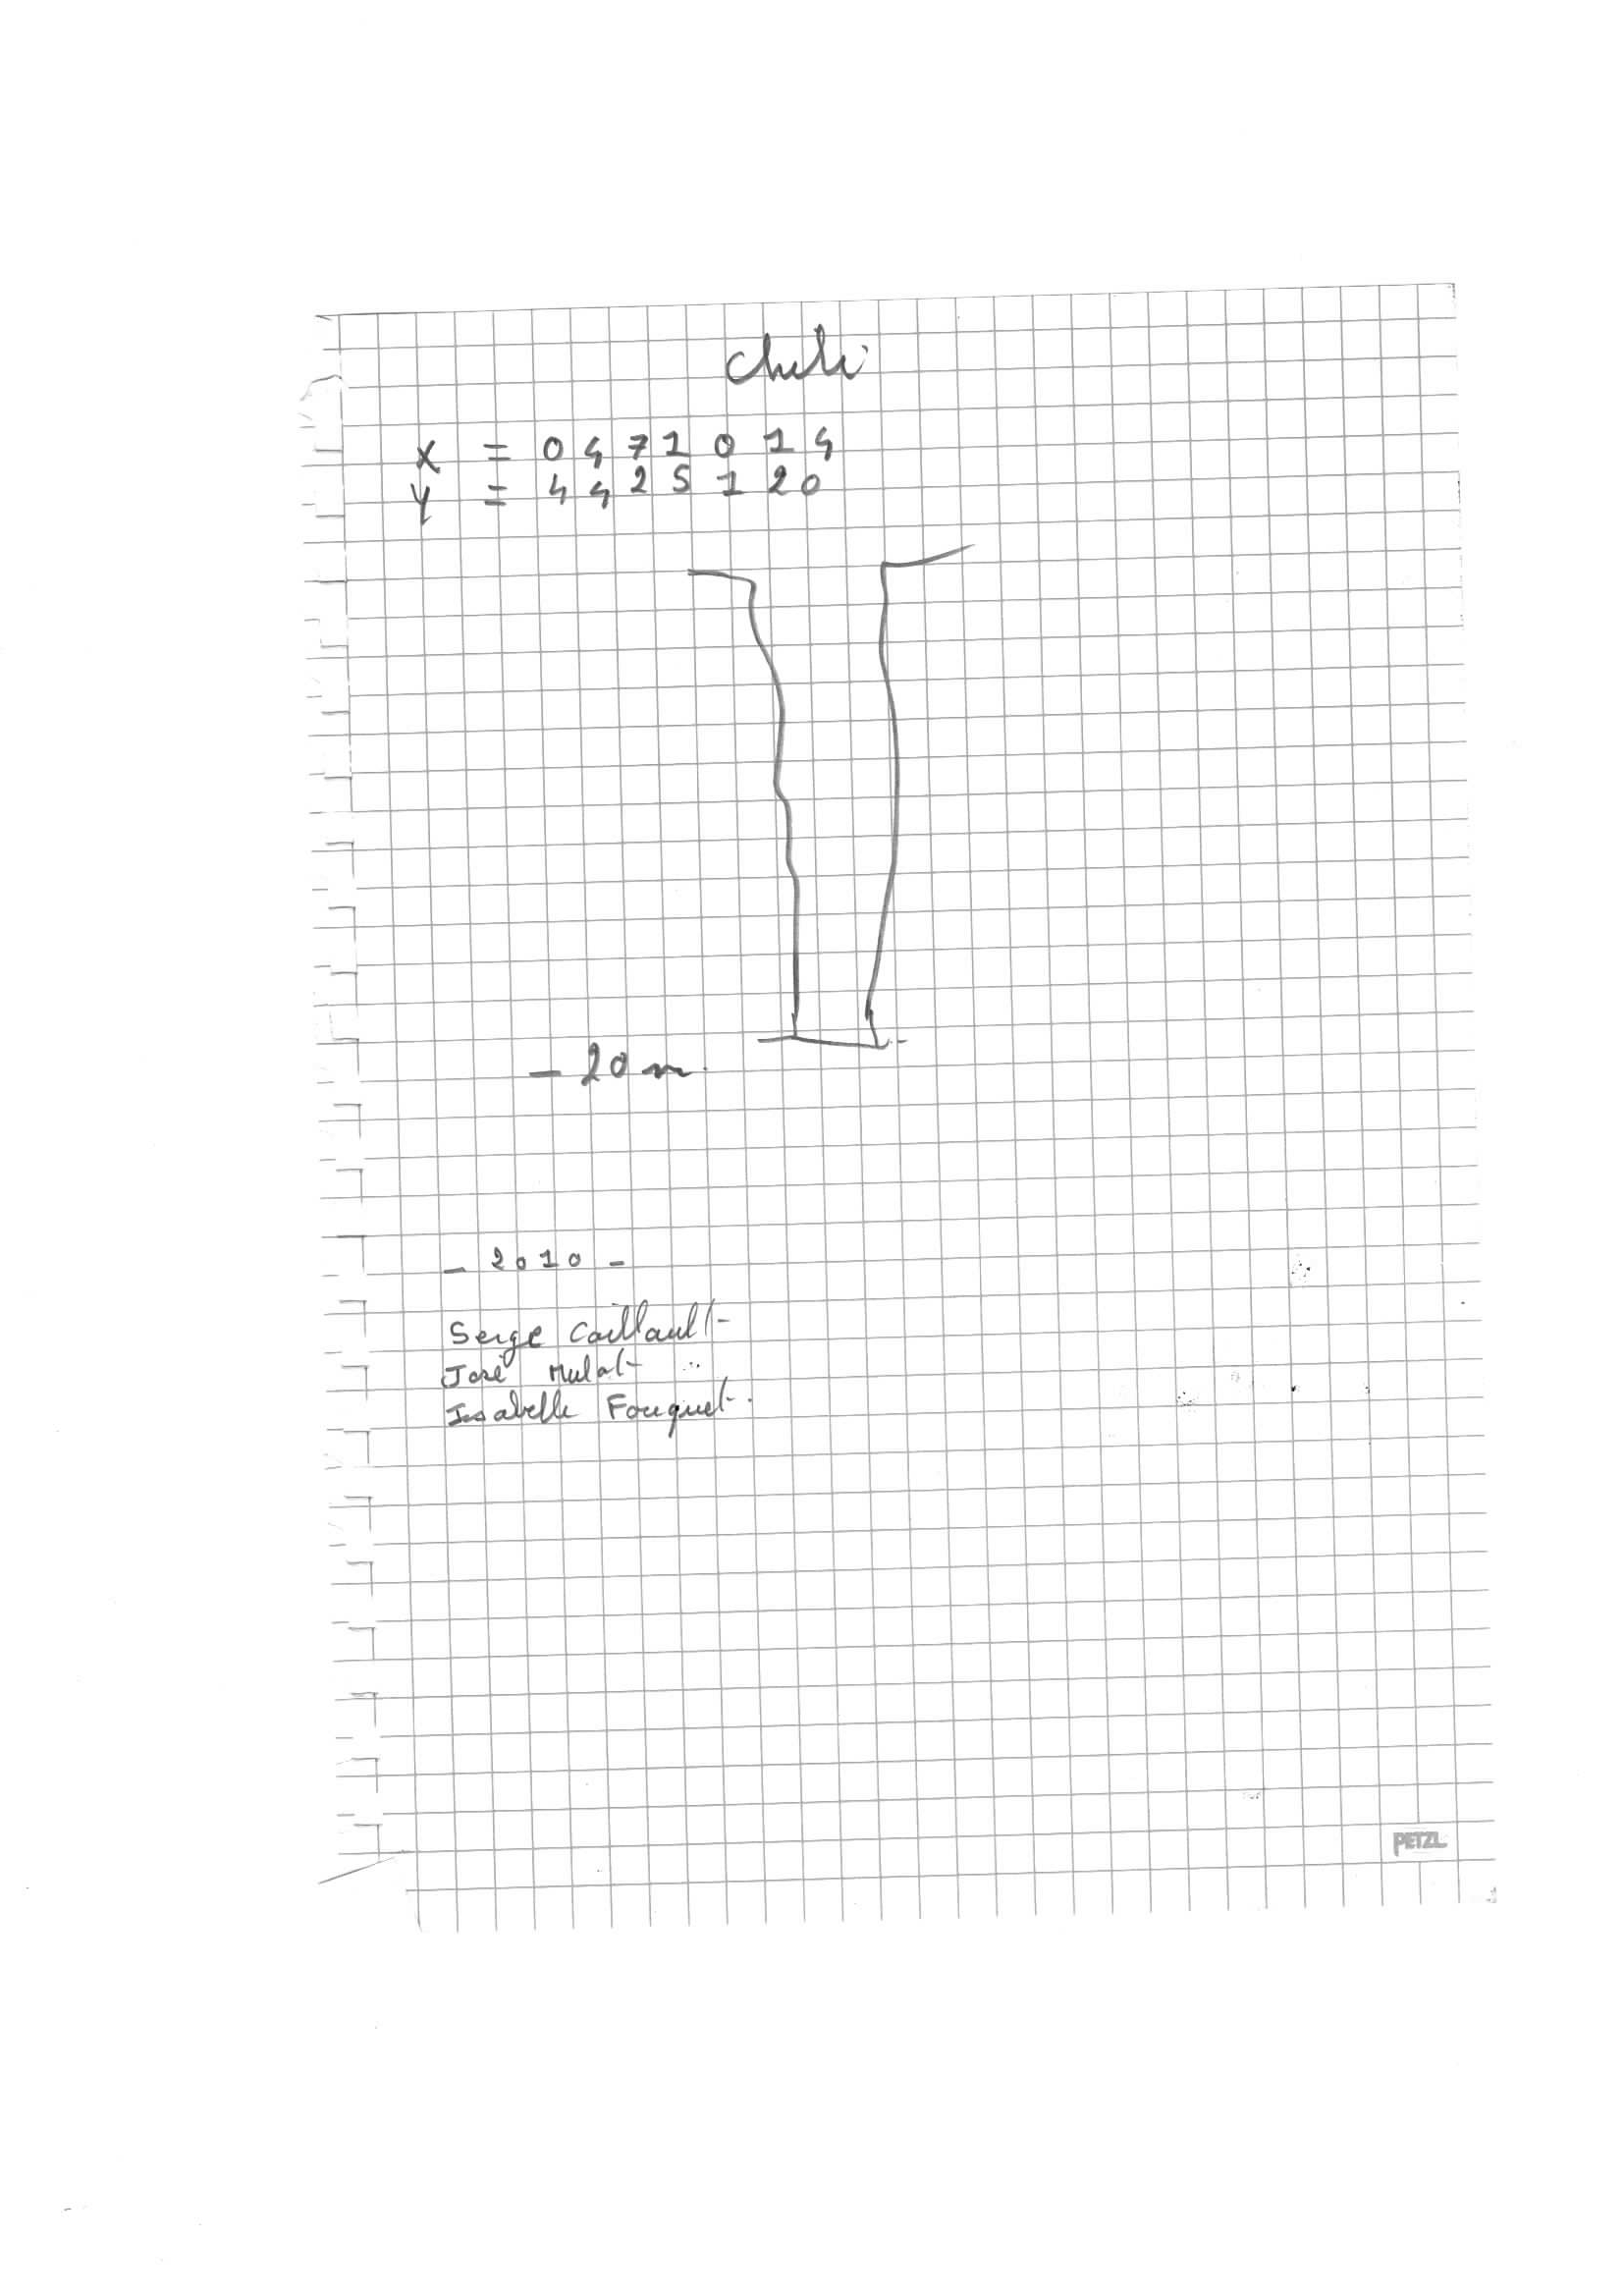 Chili
X = 0471014
Y = 4425120
- 20 m.
- 2010 -
Serge Caillault
José Mulot
Isabelle Fouquet.
PETZL